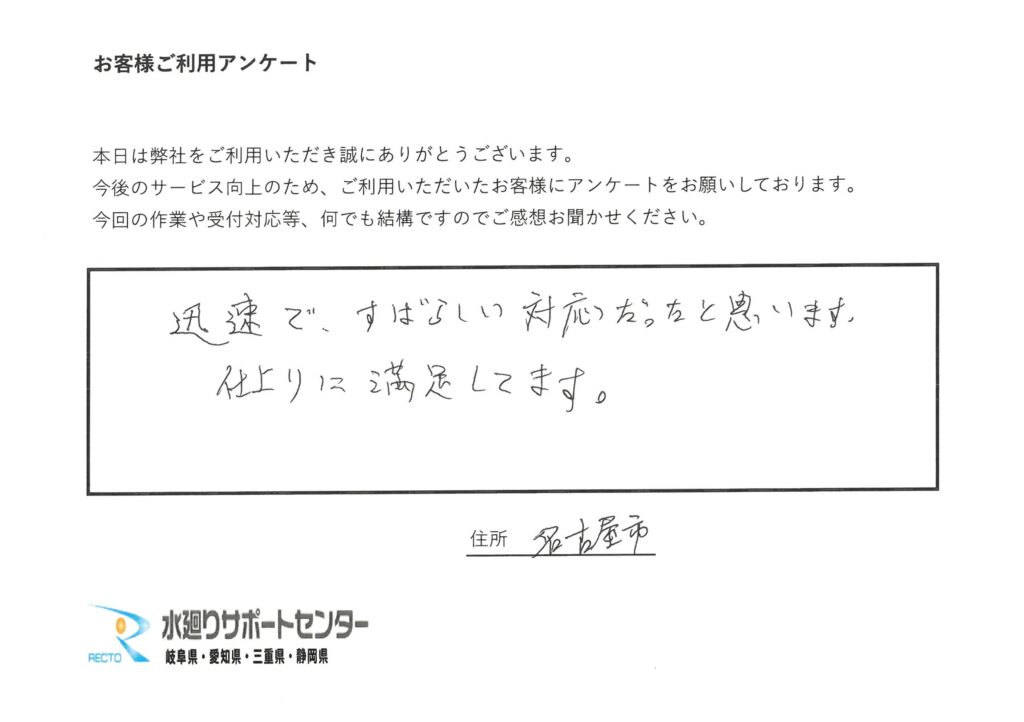 お客様ご利用アンケート
本日は弊社をご利用いただき誠にありがとうございます。
今後のサービス向上のため、ご利用いただいたお客様にアンケートをお願いしております。
今回の作業や受付対応等、何でも結構ですのでご感想お聞かせください。
迅速で、すばらしい対応だったと思います。
仕上りに満足してます。
住所 名古屋市
RECTO 水廻りサポートセンター
岐阜県・愛知県・三重県・静岡県